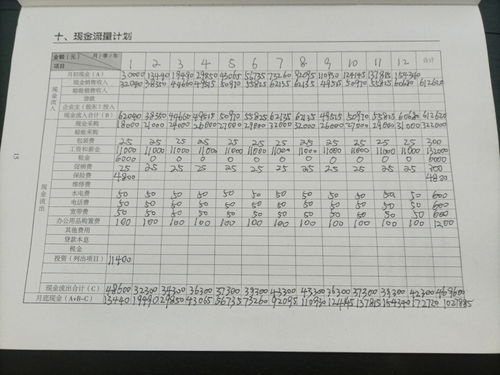 十、现金流量计划
金额（元） 月/季/年 项目 1 2 3 4 5 6 7 8 9 10 11 12 合计
现金流入
月初现金（A） 30000 13440 19490 29850 43065 56735 73260 92095 110930 124145 137815 154340
现金销售收入 32040 38350 44660 49515 50970 55825 62135 62135 49515 50970 55825 60680 612620
赊账销售收入
贷款
企业主（股东）投入
现金流入合计（B） 62040 38350 44660 49515 50970 55825 62135 62135 49515 50970 55825 60680 612620
现金流出
现金采购 18000 21000 27000 32000 32000 27000 322000
赊账采购
包装费 25 25 25 25 25 25 25 25 25 25 25 25 300
工资和薪金 11000 11000 11000 11000 11000 11000 11000 11000 11000 11000 11000 11000 132000
租金 6000 0 0 0 0 0 0 0 0 0 0 0 6000
促销费 25 25 25 25 25 25 25 25 25 25 25 25 300
保险费 4800 4800
维修费
水电费 50 50 50 50 50 50 50 50 50 50 50 50 600
电话费 50 50 50 50 50 50 50 50 50 50 50 50 600
宽带费 50 50 50 50 50 50 50 50 50 50 50 50 600
办公用品购置费 100 100 100 100 100 100 100 100 100 100 100 100 1200
其他费用
贷款本息
税金
投资（列出项目） 11400
现金流出合计（C） 48600 32300 34300 36300 37300 39300 43300 43300 36300 37300 39300 42300 469600
月底现金（A+B-C） 13440 19490 29850 43065 56735 73260 92095 110930 124145 137815 154340 172720
15